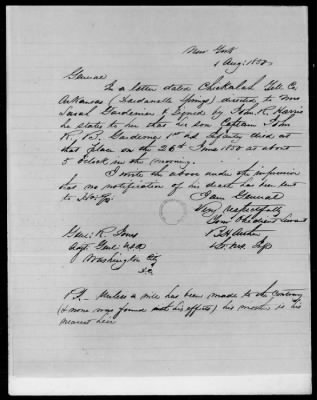 New York
1 Aug: 1850
General
In a letter dated Chickalah Yell Co
Arkansas (Dardanelle Springs) directed to Mrs
Sarah Gardenier & signed by John R. Harris
he states to her that her son Captain John
R. B. Gardenier 1st Rd Infantry died at
that place on the 26th June 1850 at about
5 o'clock in the morning.
I write the above under the impression
has no notification of his death has been sent
to
I am General
Very respectfully
Your Obedient Servant
Genl: R. Jones
Adjt Genl: USA
Washington City
D.C.
P.S. Unless a will has been made to the contrary
(& none was found with his effects) his mother is his
nearest heir